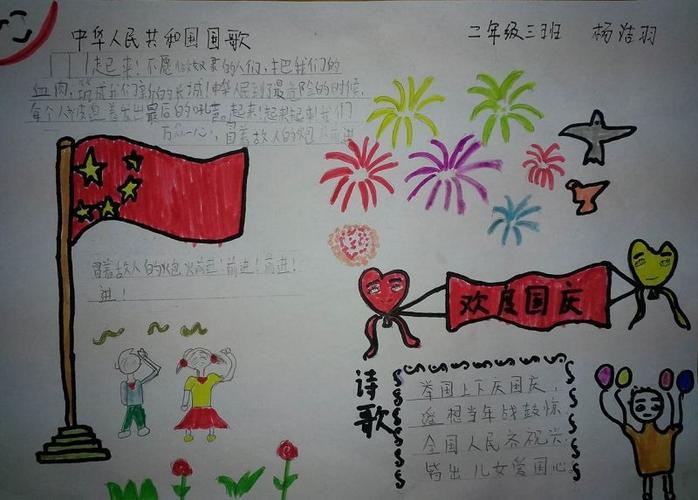 中华人民共和国国歌
二年级三班 杨 羽
起来!不愿做奴隶的人们,把我们的
血肉,筑成我们新的长城!中华民到了最危险的时候,
每个人被迫着发出最后的吼声。起来!起来起来!我们
万众一心,冒着敌人的炮 前进
冒着敌人的炮火前进!前进!前进!
进!
欢度国庆
诗歌
举国上下庆国庆,
遥想当年战鼓惊
全国人民齐祝
皆出儿女爱国心